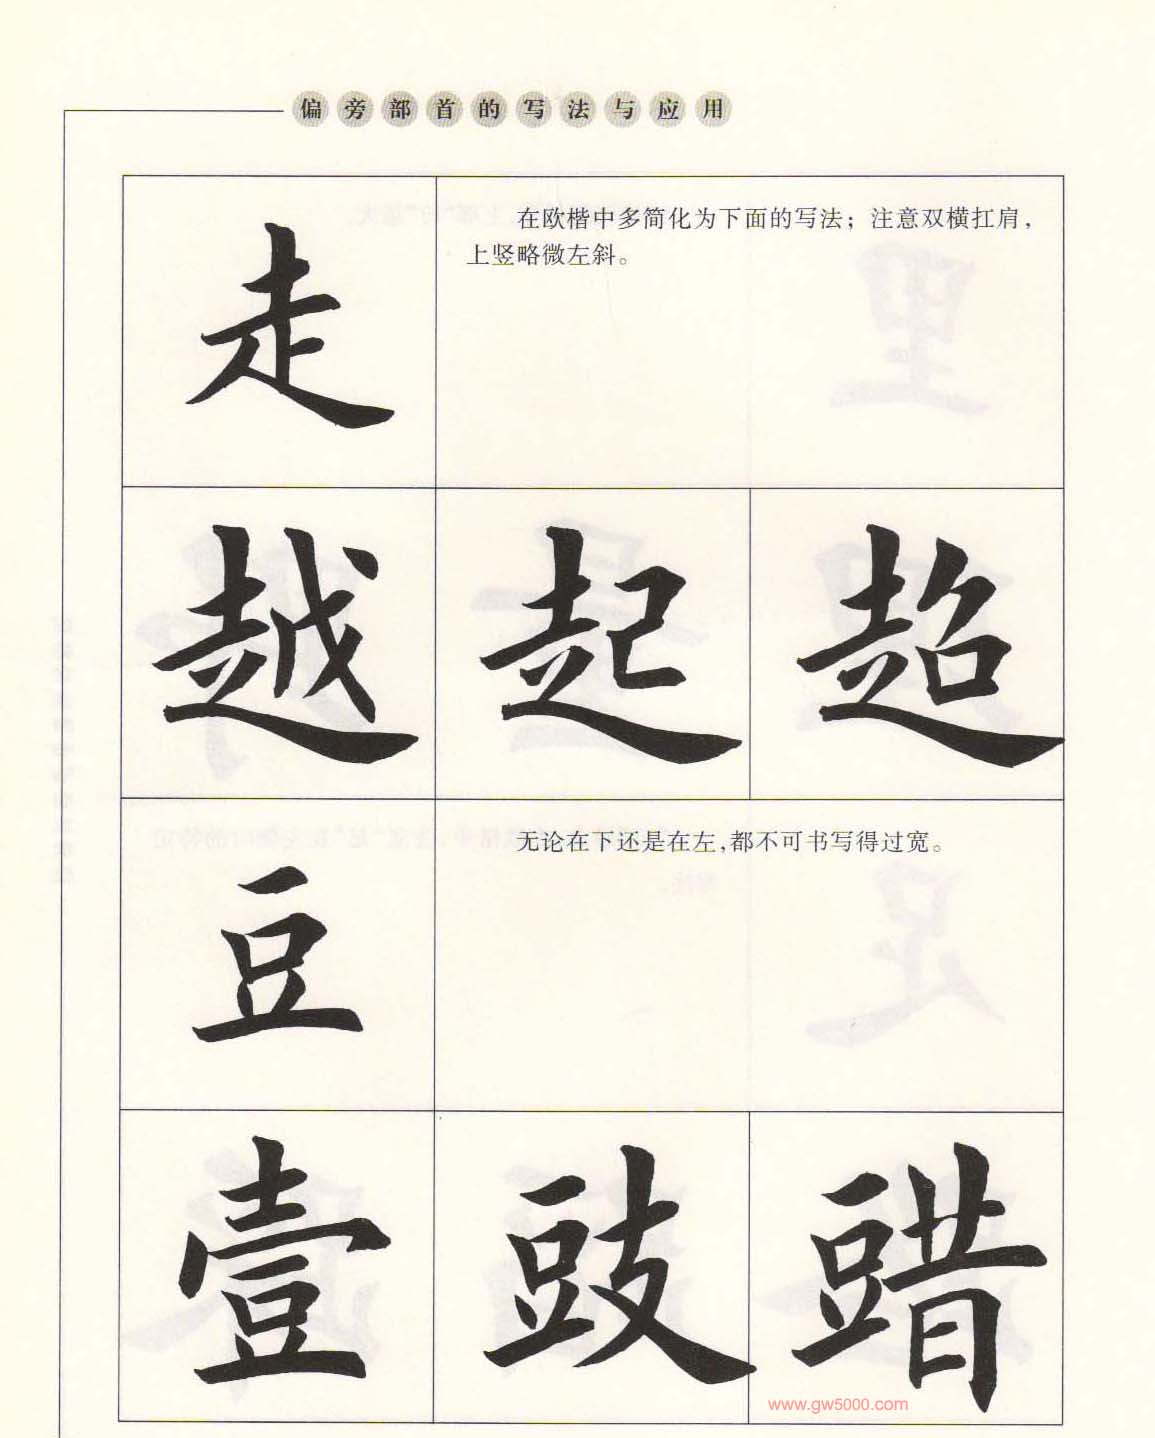 偏旁部首的写法与应用
走
在欧楷中多简化为下面的写法；注意双横扛肩，
上竖略微左斜。
越 起 超
豆
无论在下还是在左,都不可书写得过宽。
壹 豉 䜺
www.gw5000.com